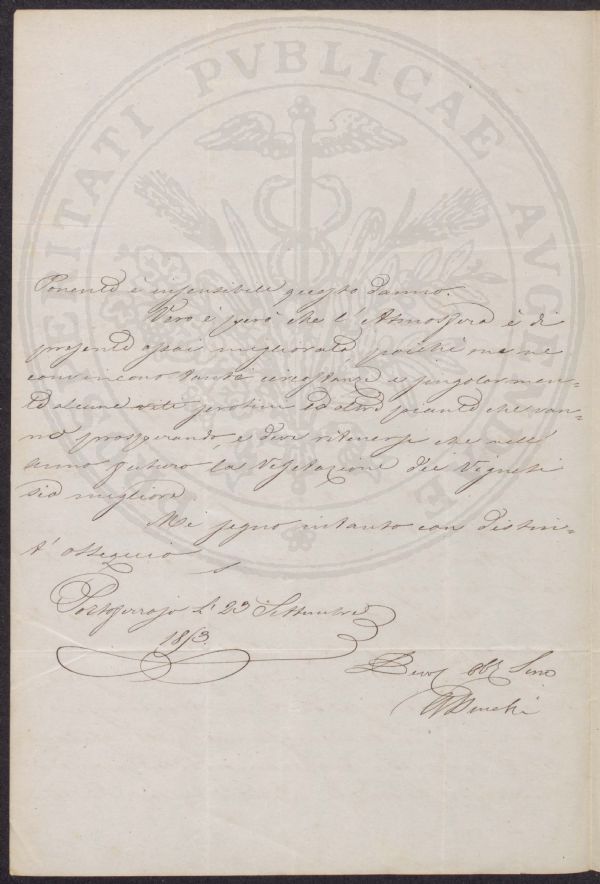 PROSPERITATI PVBLICAE AVGENDAE
Ponente è insensibile questo danno.
Vero è però che l'Atmosfera è di
presente assai migliorata poiché me ne
convincono tante circostanze e singolarmen=
te alcune viti perotine ed altre piante che van=
no prosperando, e deve ritenersi che nell'
anno futuro la Vegetazione dei Vigneti
sia migliore.
Mi segno intanto con distin=
t' ossequio
Portoferrajo Li 23 Settembre
1853.
Dev Obb Servo